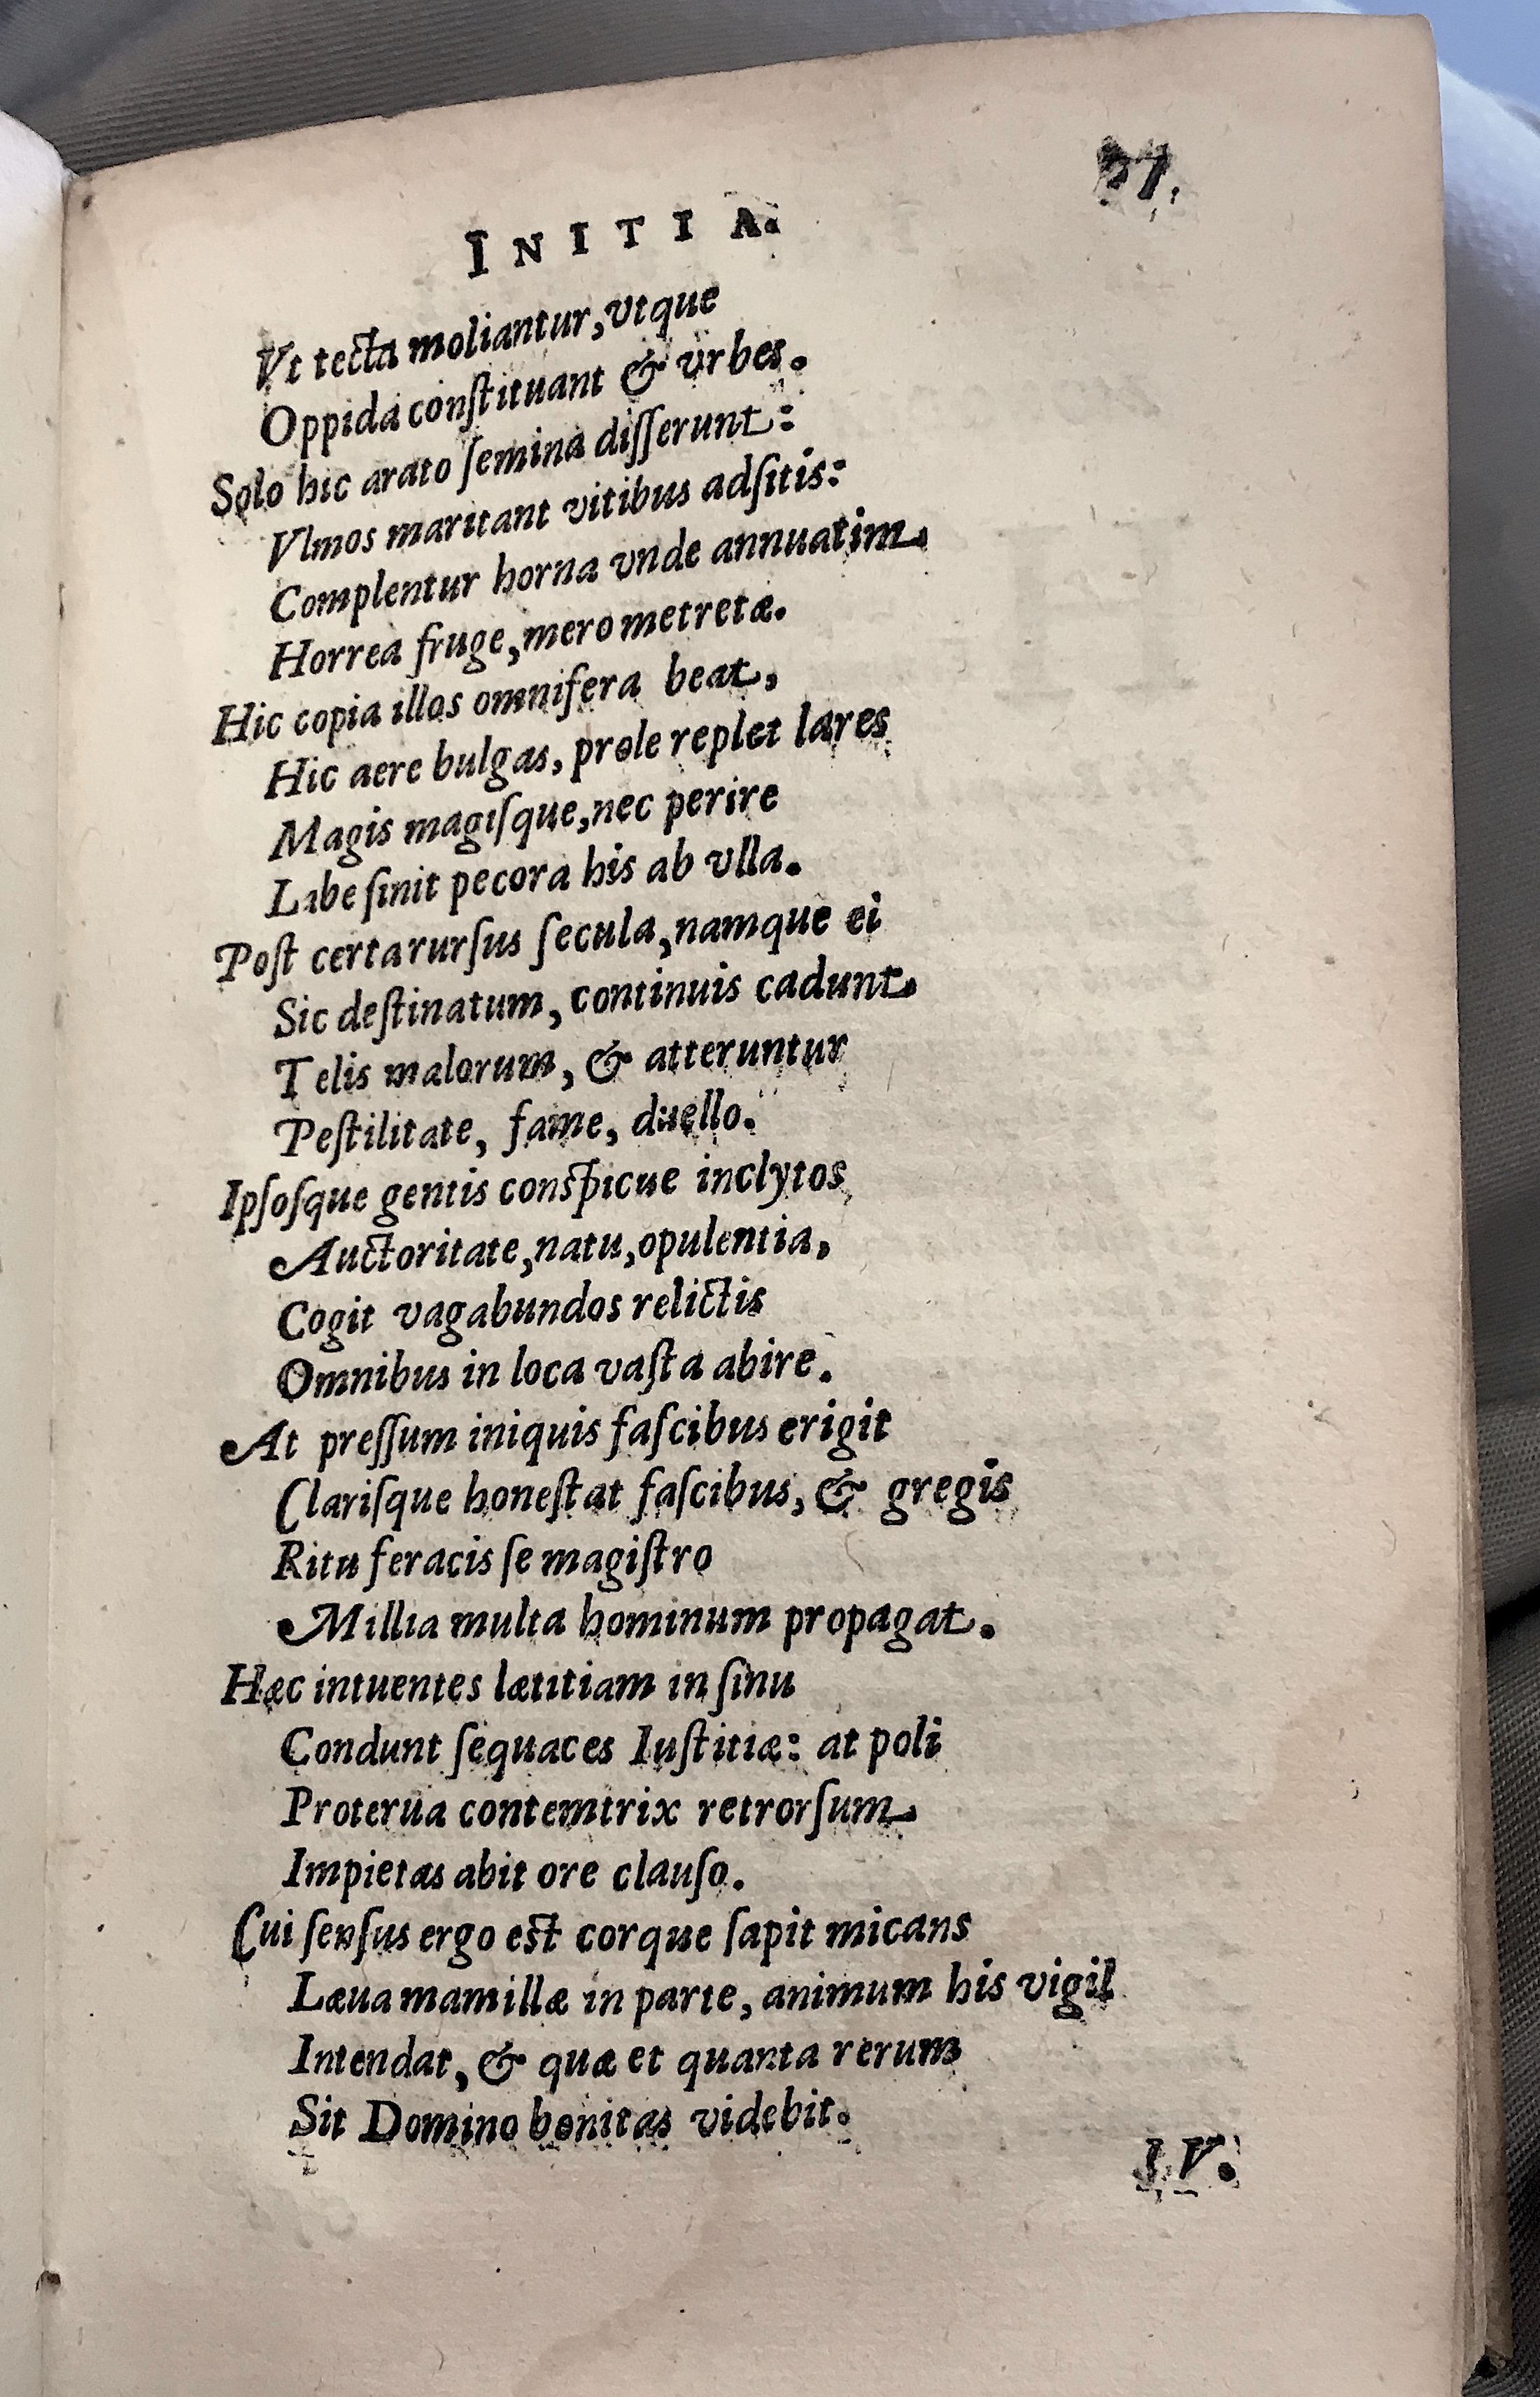 INITIA.
Vt tecta moliantur, vtque
Oppida conſtituant & vrbes.
Solo hic arato ſemina diſſerunt:
Vlmos maritant vitibus adſitis:
Complentur horna vnde annuatim
Horrea fruge, mero metretæ.
Hic copia illos omnifera beat,
Hic aere bulgas, prole replet lares
Magis magiſque, nec perire
Labe ſinit pecora his ab vlla.
Poſt certa rurſus ſecula, namque ei
Sic deſtinatum, continuis cadunt
Telis malorum, & atteruntur
Peſtilitate, fame, duello.
Ipſoſque gentis conſpicue inclytos
Auctoritate, natu, opulentia,
Cogit vagabundos relictis
Omnibus in loca vaſta abire.
At preſſum iniquis faſcibus erigit
Clariſque honeſtat faſcibus, & gregis
Ritu feracis ſe magiſtro
Millia multa hominum propagat.
Hæc intuentes lætitiam in ſinu
Condunt ſequaces Iuſtitiæ: at poli
Proterua contemtrix retrorſum
Impietas abit ore clauſo.
Cui ſenſus ergo eſt corque ſapit micans
Læua mamillæ in parte, animum his vigil
Intendat, & quæ et quanta rerum
Sit Domino bonitas videbit.
IV.